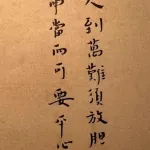 人到萬難須放胆
事當両可要平心